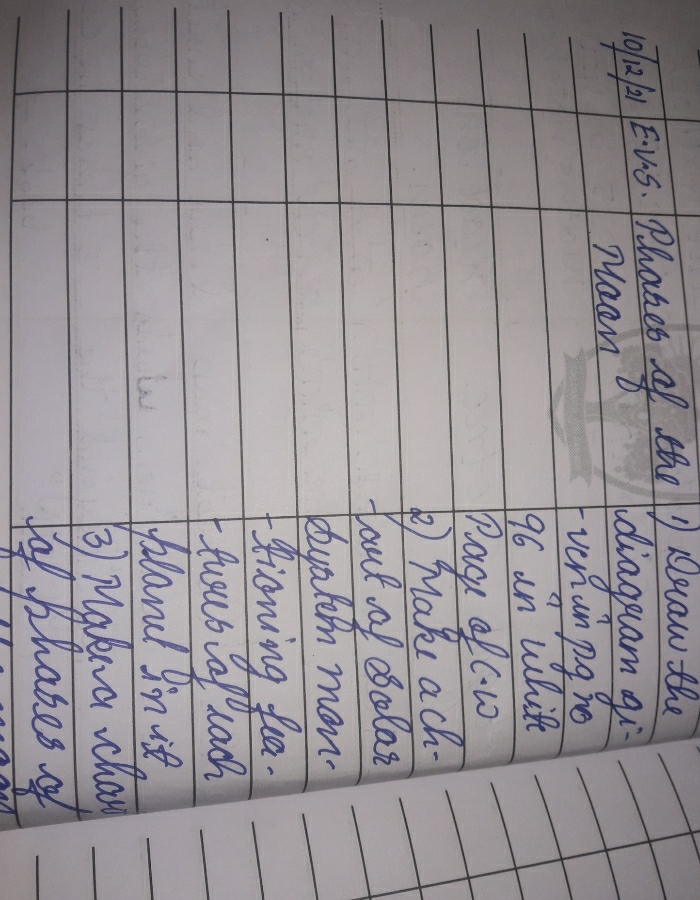 10/12/21 E.V.S. Phases of the 1) Draw the
Moon diagram gi-
-ven in pg no
96 in white
Page of C.W
2) Make a ch-
-art of Solar
System men-
-tioning fea-
-tures of each
planet in it
3) Make a chart
of phases of